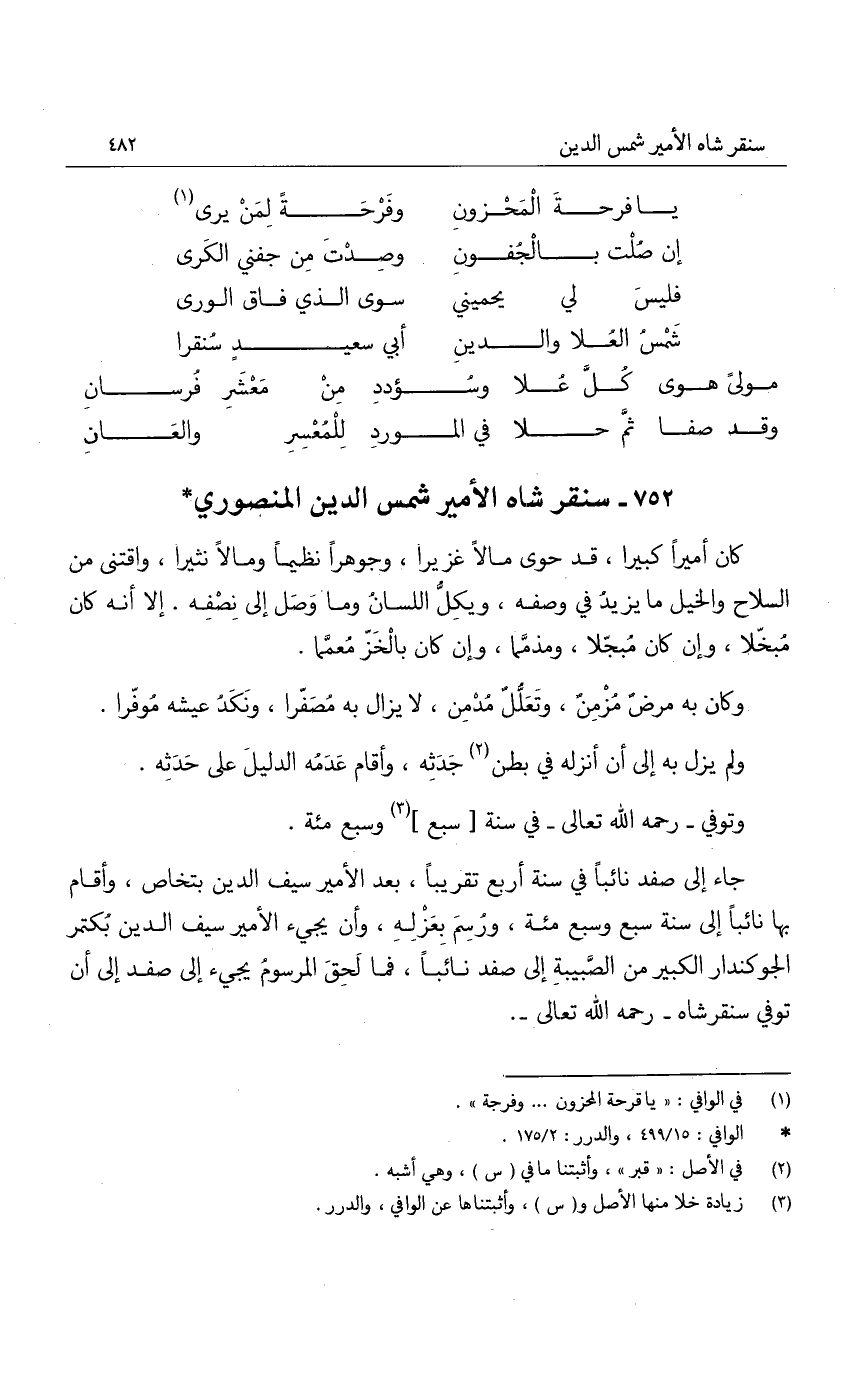 سنقر شاه الأمير شمس الدين ٤٨٢
يا فرحة الْمَحْزونِ وفَرْحَةً لِمَنْ يرى(١)
إن صُلْت بالْجُفون وصِدْتَ مِن جفني الكَرى
فليسَ لي يحميني سوى الذي فاق الورى
شَمْسُ العُلا والدينِ أبي سعيدٍ سُنقرا
مولىً هوى كُلَّ عُلا وسُؤددِ مِنْ مَعْشَرِ فُرسانِ
وقد صفا ثمَّ حلا في الموردِ لِلْمُعْسِرِ والعَانِ
٧٥٢ ـ سنقر شاه الأمير شمس الدين المنصوري*
كان أميراً كبيرا ، قد حوى مالاً غزيرا ، وجوهراً نظيماً ومالاً نثيرا ، واقتنى من
السلاح والخيل ما يزيدُ في وصفه ، ويكلُّ اللسانُ وما وَصَل إلى نِصْفِه . إلا أنه كان
مُبخّلا ، وإن كان مُبجّلا ، ومذمَّما ، وإن كان بالْخَزّ مُعمَّما .
وكان به مرضٌ مُزْمِنٌ ، وتَعَلُّلٌ مُدْمِن ، لا يزال به مُصَفّرا ، ونَكَدُ عيشه مُوفّرا .
ولم يزل به إلى أن أنزله في بطن(٢) جَدَثِه ، وأقام عَدَمُه الدليلَ على حَدَثِه .
وتوفي ـ رحمه الله تعالى ـ في سنة [ سبع ](٣) وسبع مئة .
جاء إلى صفد نائباً في سنة أربع تقريباً ، بعد الأمير سيف الدين بتخاص ، وأقام
بها نائباً إلى سنة سبع وسبع مئة ، ورُسِمَ بعَزْلِهِ ، وأن يجيء الأمير سيف الدين بُكتمر
الجوكندار الكبير من الصَّبيبةِ إلى صفد نائباً ، فما لَحِقَ المرسومُ يجيء إلى صفد إلى أن
توفي سنقرشاه ـ رحمه الله تعالى ـ.
(١) في الوافي : « يا قرحة المحزون ... وفرجة » .
* الوافي : ٤٩٩/١٥ ، والدرر : ١٧٥/٢ .
(٢) في الأصل : « قبر » ، وأثبتنا ما في ( س ) ، وهي أشبه .
(٣) زيادة خلا منها الأصل و( س ) ، وأثبتناها عن الوافي ، والدرر .